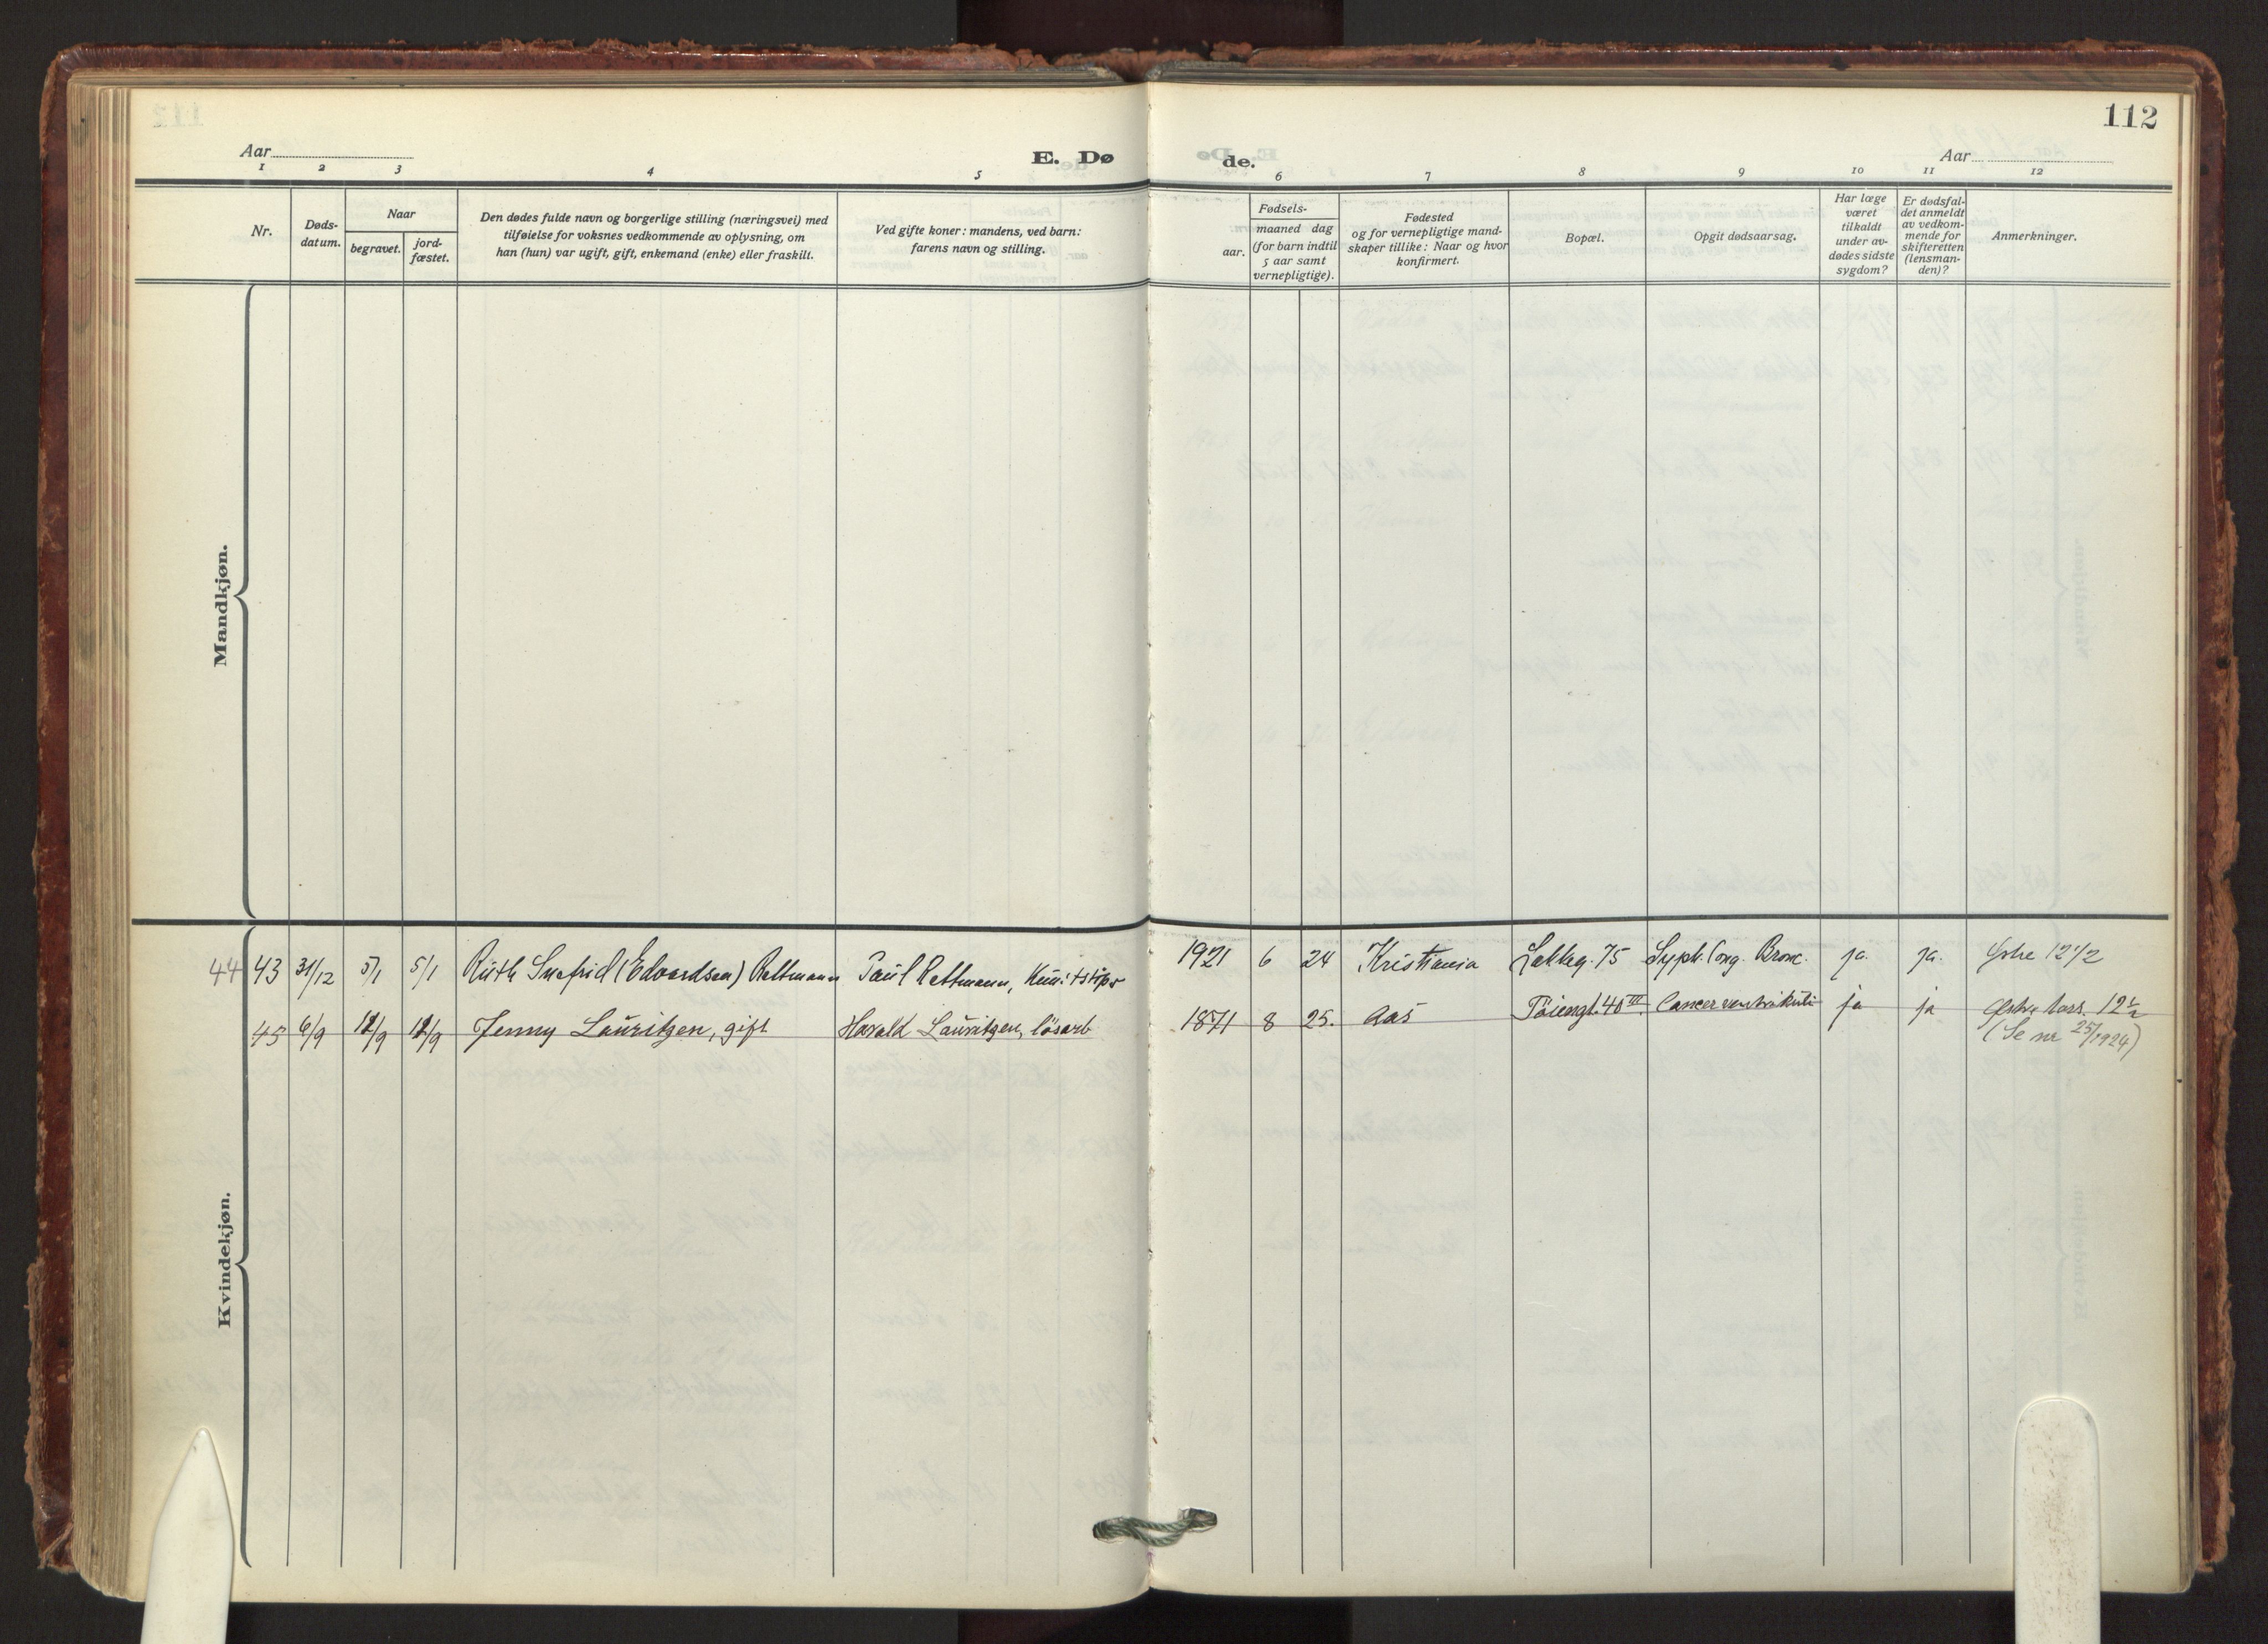 112
Aar
E. Dø
de.
Aar
1 2 3 4 5 6 7 8 9 10 11 12
Nr.
Døds-
datum.
Naar
begravet.
jord-
fæstet.
Den dødes fulde navn og borgerlige stilling (næringsvei) med
tilføielse for voksnes vedkommende av oplysning, om
han (hun) var ugift, gift, enkemand (enke) eller fraskilt.
Ved gifte koner: mandens, ved barn:
farens navn og stilling.
Fødsels-
aar.
maaned dag
(for barn indtil
5 aar samt
vernepligtige).
Fødested
og for vernepligtige mand-
skaper tillike: Naar og hvor
konfirmert.
Bopæl.
Opgit dødsaarsag.
Har læge
været
tilkaldt
under av-
dødes sidste
sygdom?
Er dødsfal-
det anmeldt
av vedkom-
mende for
skifteretten
(lensman-
den)?
Anmerkninger.
Mandkjøn.
Kvindekjøn.
44 43 31/12 5/1 5/1 Ruth Snefrid (Edvardsen) Rettmann Paul Rettmann, 1921 6 24 Kristiania Lakkeg. 75 Syph. Cong. Bronc. ja. ja. Østre 12 1/2
45 6/9 12/9 12/9 Jenny Lauritzen, gift Harald Lauritzen, løsarb 1871 8 25. Aas Töiengt. 40 III. Cancer ventrikuli ja ja Østre 12 1/2
(Se nr 25/1924)